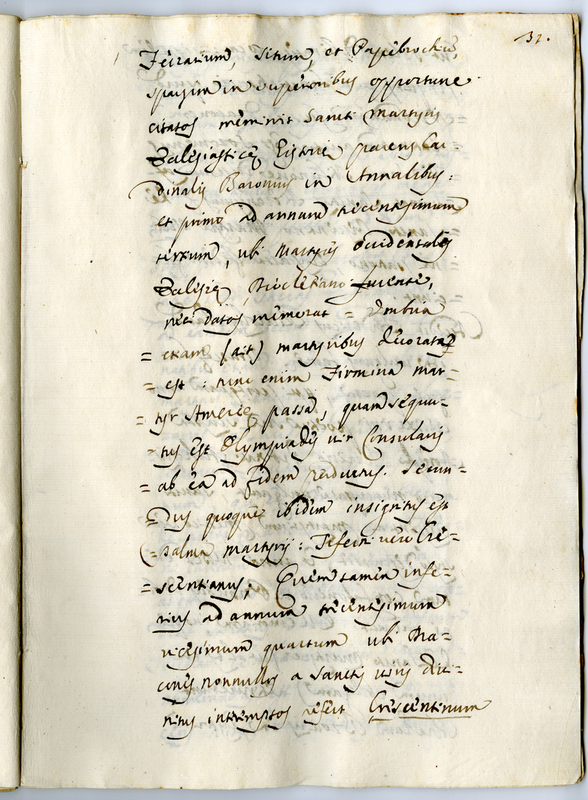 31.
Ferrarium, Situm, et Papebrochiũ,
spaꝑim in superioribus opportune
citatos meminit Sancti Martyris
Eclesiasticę Historię parens Car
dinalis Baronius in Annalibus:
et primo ad annum trecentesimum
tertium, ubi Martyres occidentalis
Eclesię, Diocletiano furente,
neci datos memorat = Umbria
= etiam (ait) martyribus decorata
= est: hinc enim Firmina mar=
= tyr Amerię passa, quam sequu=
= tus est Olympiadis vir Consularis
= ab ea ad fidem perductus. Secun=
= dus quoque ibidem insignitus est
= palma martyrij: Tiferni verò Cre=
= scentianus; Quem tamen infe=
rius ad annum trecentesimum
vicesimum quartum ubi Dia=
cones nonnullos a Sanctis viris divi=
nitus interemptos refert Crescentinum